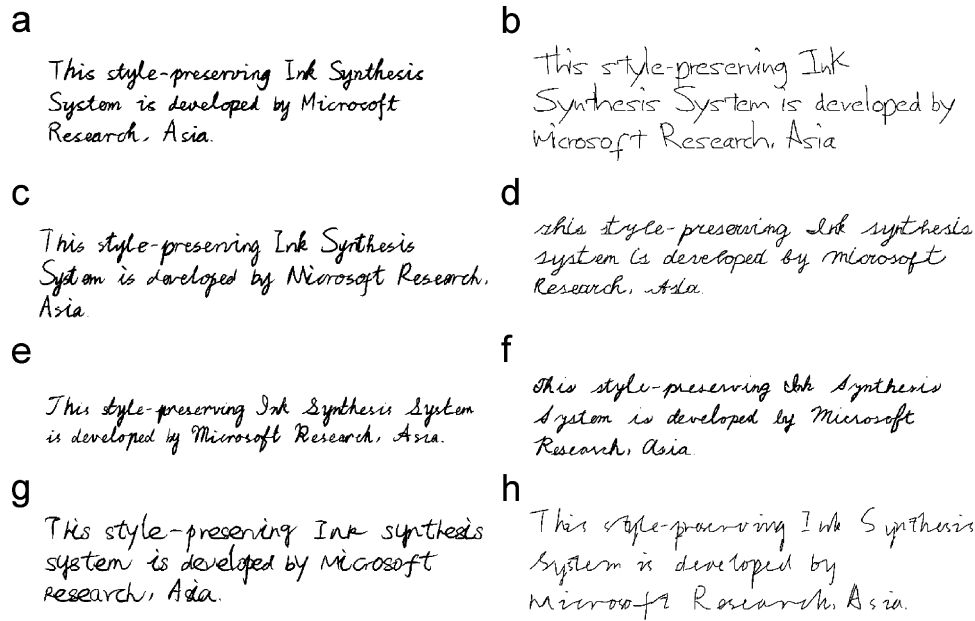 a
This style-preserving Ink Synthesis
System is developed by Microsoft
Research, Asia.
b
This style-preserving Ink
Synthesis System is developed by
Microsoft Research, Asia
c
This style-preserving Ink Synthesis
System is developed by Microsoft Research,
Asia.
d
This style-preserving Ink synthesis
system is developed by Microsoft
Research, Asia.
e
This style-preserving Ink Synthesis System
is developed by Microsoft Research, Asia.
f
This style-preserving Ink Synthesis
System is developed by Microsoft
Research, Asia
g
This style-preserving Ink synthesis
system is developed by Microsoft
research, Asia.
h
This style-preserving Ink Synthesis
System is developed by
Microsoft Research, Asia.